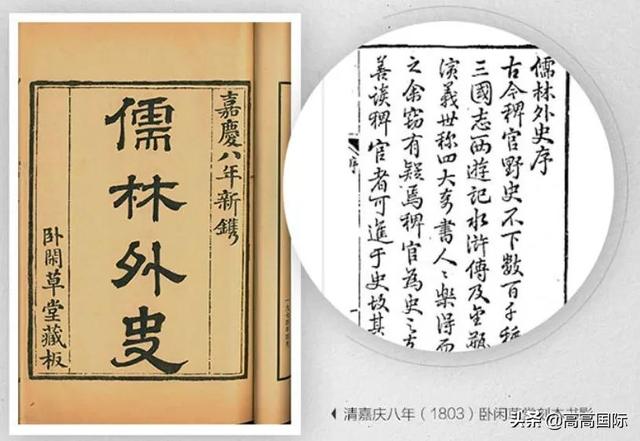 嘉慶八年新鐫
儒林外史
卧閑草堂藏板
儒林外史序
古今稗官野史不下數百千種
三國志西遊記水滸傳及金瓶
演義世称四大奇書人〻樂得而
之余窃有疑焉稗官為史之支
善读稗官者可進于史故其
序
清嘉庆八年（1803）卧闲草堂刻本书影
头条 @高高国际